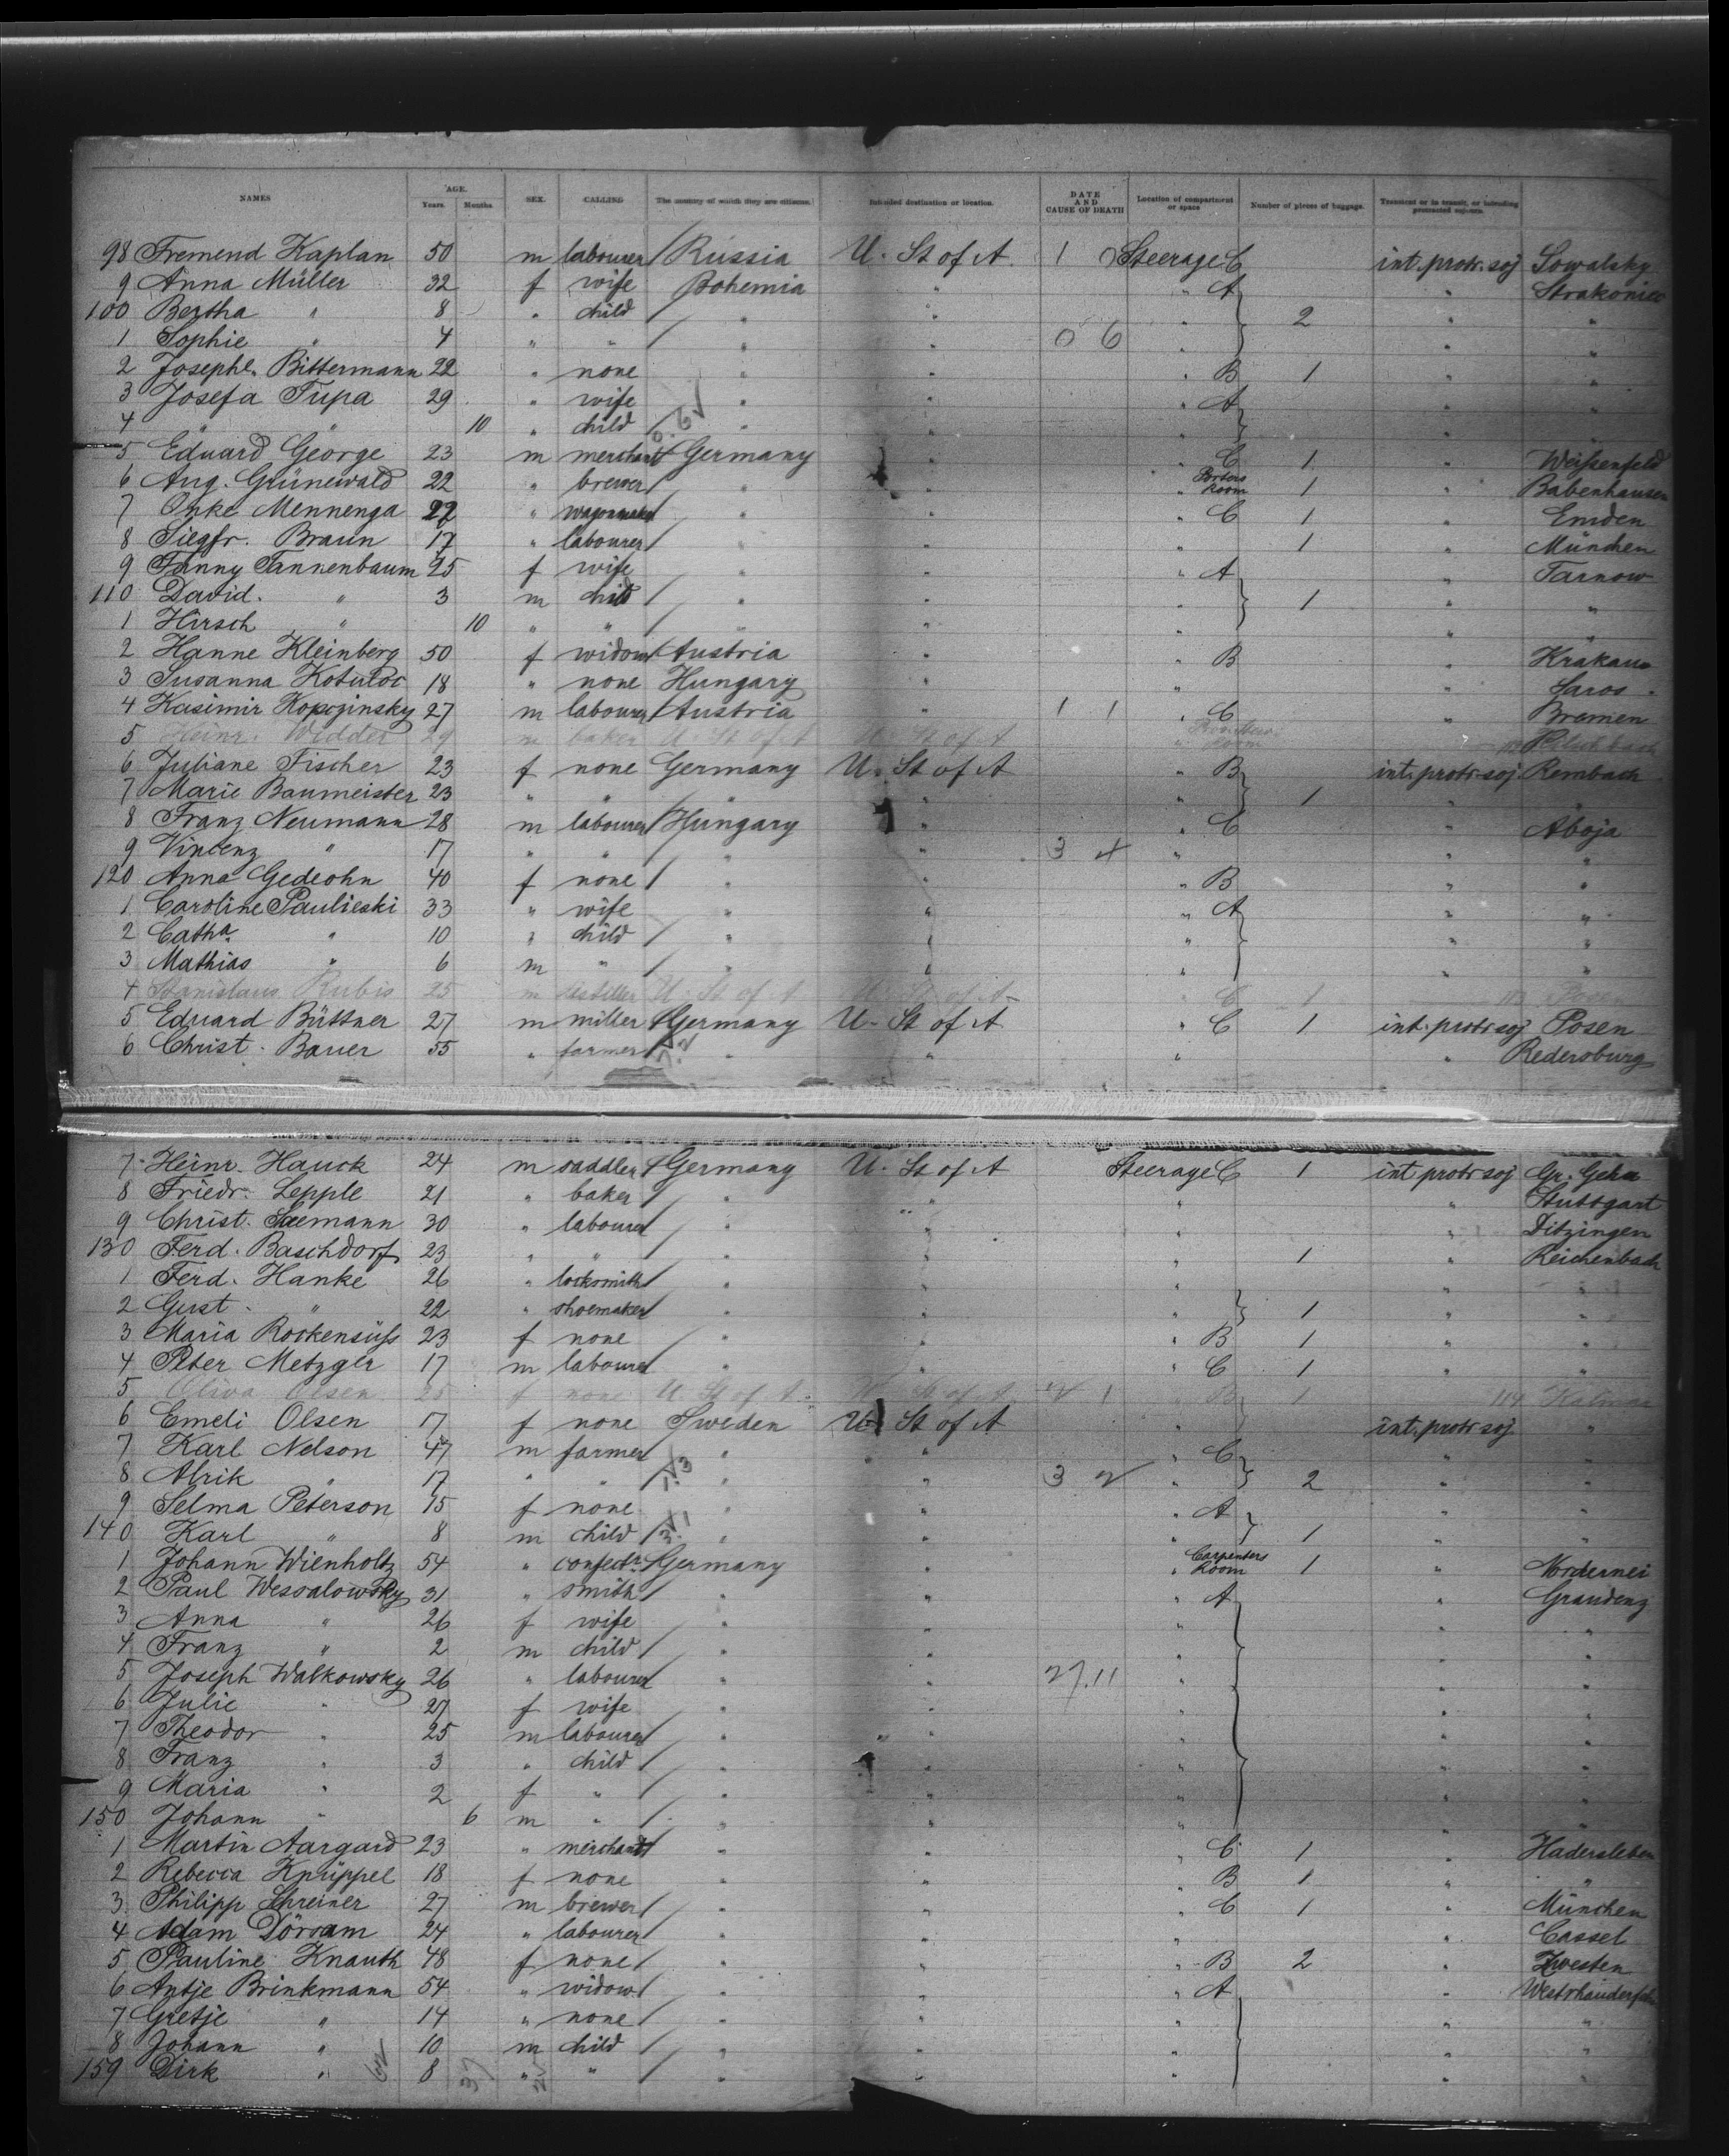 NAMES AGE. Years. Months. SEX. CALLING The country of which they are citizens. Intended destination or location. DATE AND CAUSE OF DEATH Location of compartment or space Number of pieces of baggage. Transient or in transit, or intending protracted sojourn.
98 Fremend Kaplan 50 m labourer Russia U. St of A. 1 0 Steerage C int. protr. soj Sowalsky
9 Anna Müller 32 f wife Bohemia " " A " Strakonice
100 Bertha " 8 " child " " " 2 " "
1 Sophie " 4 " " " " 0 6 " " "
2 Josephe. Bittermann 22 " none " " " B 1 " "
3 Josefa Tupa 29 " wife " " " A " "
4 " " 10 " child " " " " "
5 Eduard George 23 m merchant Germany " " C 1 " Weißenfeld
6 Aug. Grünewald 22 " brewer " " " Porters Room 1 " Babenhausen
7 Onke Mennenga 22 " wagonmaker " " " C 1 " Emden
8 Siegfr. Braun 17 " labourer " " " 1 " München
9 Fanny Tannenbaum 25 f wife " " " A " Tarnow
110 David. " 3 m child " " " 1 " "
1 Hirsch " 10 " " " " " " "
2 Hanne Kleinberg 50 f widow Austria " " B " Krakau
3 Susanna 18 " none Hungary " " " Saros
4 Kasimir Kopozinsky 27 m labourer Austria " 1 1 " C " Bremen
5 Heinr. Widder 29 m baker U. St of A U. St of A " Room
6 Juliane Fischer 23 f none Germany U. St of A " B int. protr. soj Rembach
7 Marie Baumeister 23 " " " " " 1 " "
8 Franz Neumann 28 m labourer Hungary " " C " Aboja
9 Vincenz " 17 " " " " 3 " " "
120 Anna Gedeohn 40 f none " " " B " "
1 Caroline Paulieski 33 " wife " " " A " "
2 Catha " 10 " child " " " " "
3 Mathias " 6 m " " " " " "
4 Stanislaus Rubis 25 m distiller U. St of A U. St of A " C 1 113 Posen
5 Eduard Büttner 27 m miller Germany U. St of A " C 1 int. protr soj Posen
6 Christ. Bauer 55 " farmer " " " " Redersburg
7 Heinr. Hauck 24 m saddler Germany U. St of A Steerage C 1 int protr soj Gr. Gerau
8 Friedr. Lepple 21 " baker " " " " Stuttgart
9 Christ. Seemann 30 " labourer " " " " Ditzingen
130 Ferd. Baschdorf 23 " " " " " 1 " Reichenbach
1 Ferd. Hanke 26 " locksmith " " " " "
2 Gust. " 22 " shoemaker " " " 1 " "
3 Maria Rockensüß 23 f none " " " B 1 " "
4 Peter Metzger 17 m labourer " " " C 1 " "
5 Oliva Olsen 25 f none U. St of A. U. St of A 2 1 " B 1 114 Kalmar
6 Emeli Olsen 17 f none Sweden U. St of A " int. protr soj "
7 Karl Nelson 47 m farmer " " " C " "
8 Alrik " 17 " " " " 3 2 " 2 " "
9 Selma Peterson 15 f none " " " A " "
140 Karl " 8 m child " " " 1 " "
1 Johann Wienholtz 54 " confectr. Germany " " Carpenters Room 1 " Nordernei
2 Paul Wessalowsky 31 " smith " " " A " Graudenz
3 Anna " 26 f wife " " " " "
4 Franz " 2 m child " " " " "
5 Joseph Walkowsky 26 " labourer " " 27.11 " " "
6 Julie " 27 f wife " " " " "
7 Theodor " 25 m labourer " " " " "
8 Franz " 3 " child " " " " "
9 Maria " 2 f " " " " " "
150 Johann " 6 m " " " " " "
1 Martin Aargard 23 " merchant " " " C 1 " Hadersleben
2 Rebecca Knüppel 18 f none " " " B 1 " "
3 Philipp Schreiner 27 m brewer " " " C 1 " München
4 Adam Dörsam 24 " labourer " " " " Cassel
5 Pauline Knauth 48 f none " " " B 2 " Zwesten
6 Antje Brinkmann 54 " widow " " " A " Westrhauderfehn
7 Gretje " 14 " none " " " " "
8 Johann " 10 m child " " " " "
159 Dirk " 8 " " " " " " "